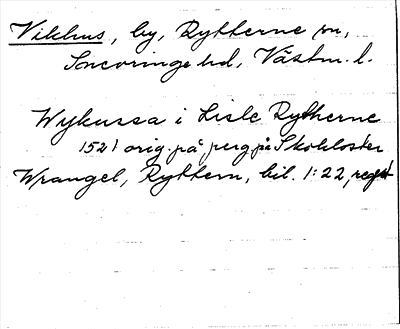 Vikhus, by, Rytterne sn,
Snevringe hd, Västm. l.
Wykussa i Lisle Rytherne
1521 orig. på perg. på Skokloster
Wrangel, Ryttern, bil. 1:22, regest